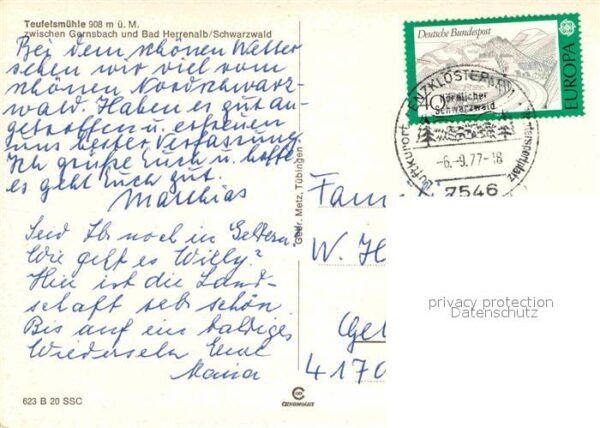 Teufelsmühle 908 m ü. M.
zwischen Gernsbach und Bad Herrenalb/Schwarzwald
Bei dem schönen Wetter
sehen wir viel vom
schönen Nordschwarz-
wald. Haben es gut an-
getroffen u. erfreuen
uns bester Verfassung.
Ich grüße Euch u. hoffe
es geht Euch gut.
Matthias
Seid Ihr noch in Geldern?
Wie geht es Willy?
Hier ist die Land-
schaft sehr schön.
Bis auf ein baldiges
Wiedersehn Eure
Maria
623 B 20 SSC
Gebr. Metz, Tübingen
CEKOMBLAT
Deutsche Bundespost
40
EUROPA
ENZKLÖSTERLE
Nördlicher
Schwarzwald
Luftkurort
Wintersportplatz
-6.-9.77-18
7546
Fam
W. H
Gel
4170
privacy protection
Datenschutz